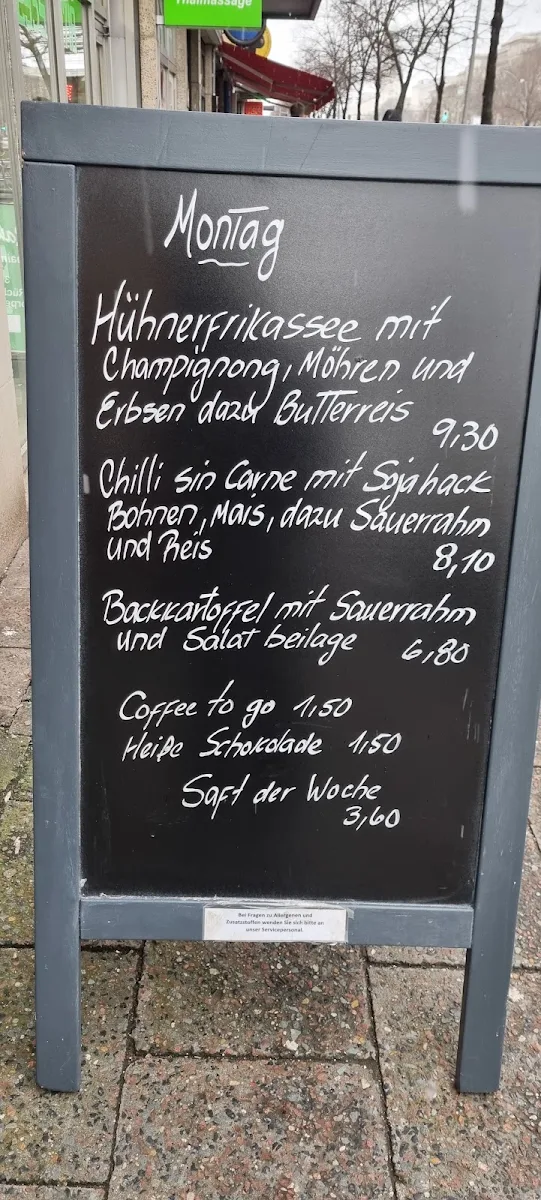 Thaimassage
Montag
Hühnerfrikassee mit
Champignong, Möhren und
Erbsen dazu Butterreis
9,30
Chilli sin Carne mit Sojahack
Bohnen, Mais, dazu Sauerrahm
und Reis 8,10
Backkartoffel mit Sauerrahm
und Salat beilage 6,80
Coffee to go 1,50
Heiße Schokolade 1,50
Saft der Woche
3,60
Bei Fragen zu Allergenen und
Zusatzstoffen wenden Sie sich bitte an
unser Servicepersonal.